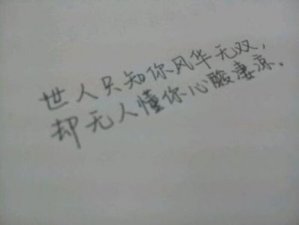 世人只知你风华无双，
却无人懂你心酸凄凉.